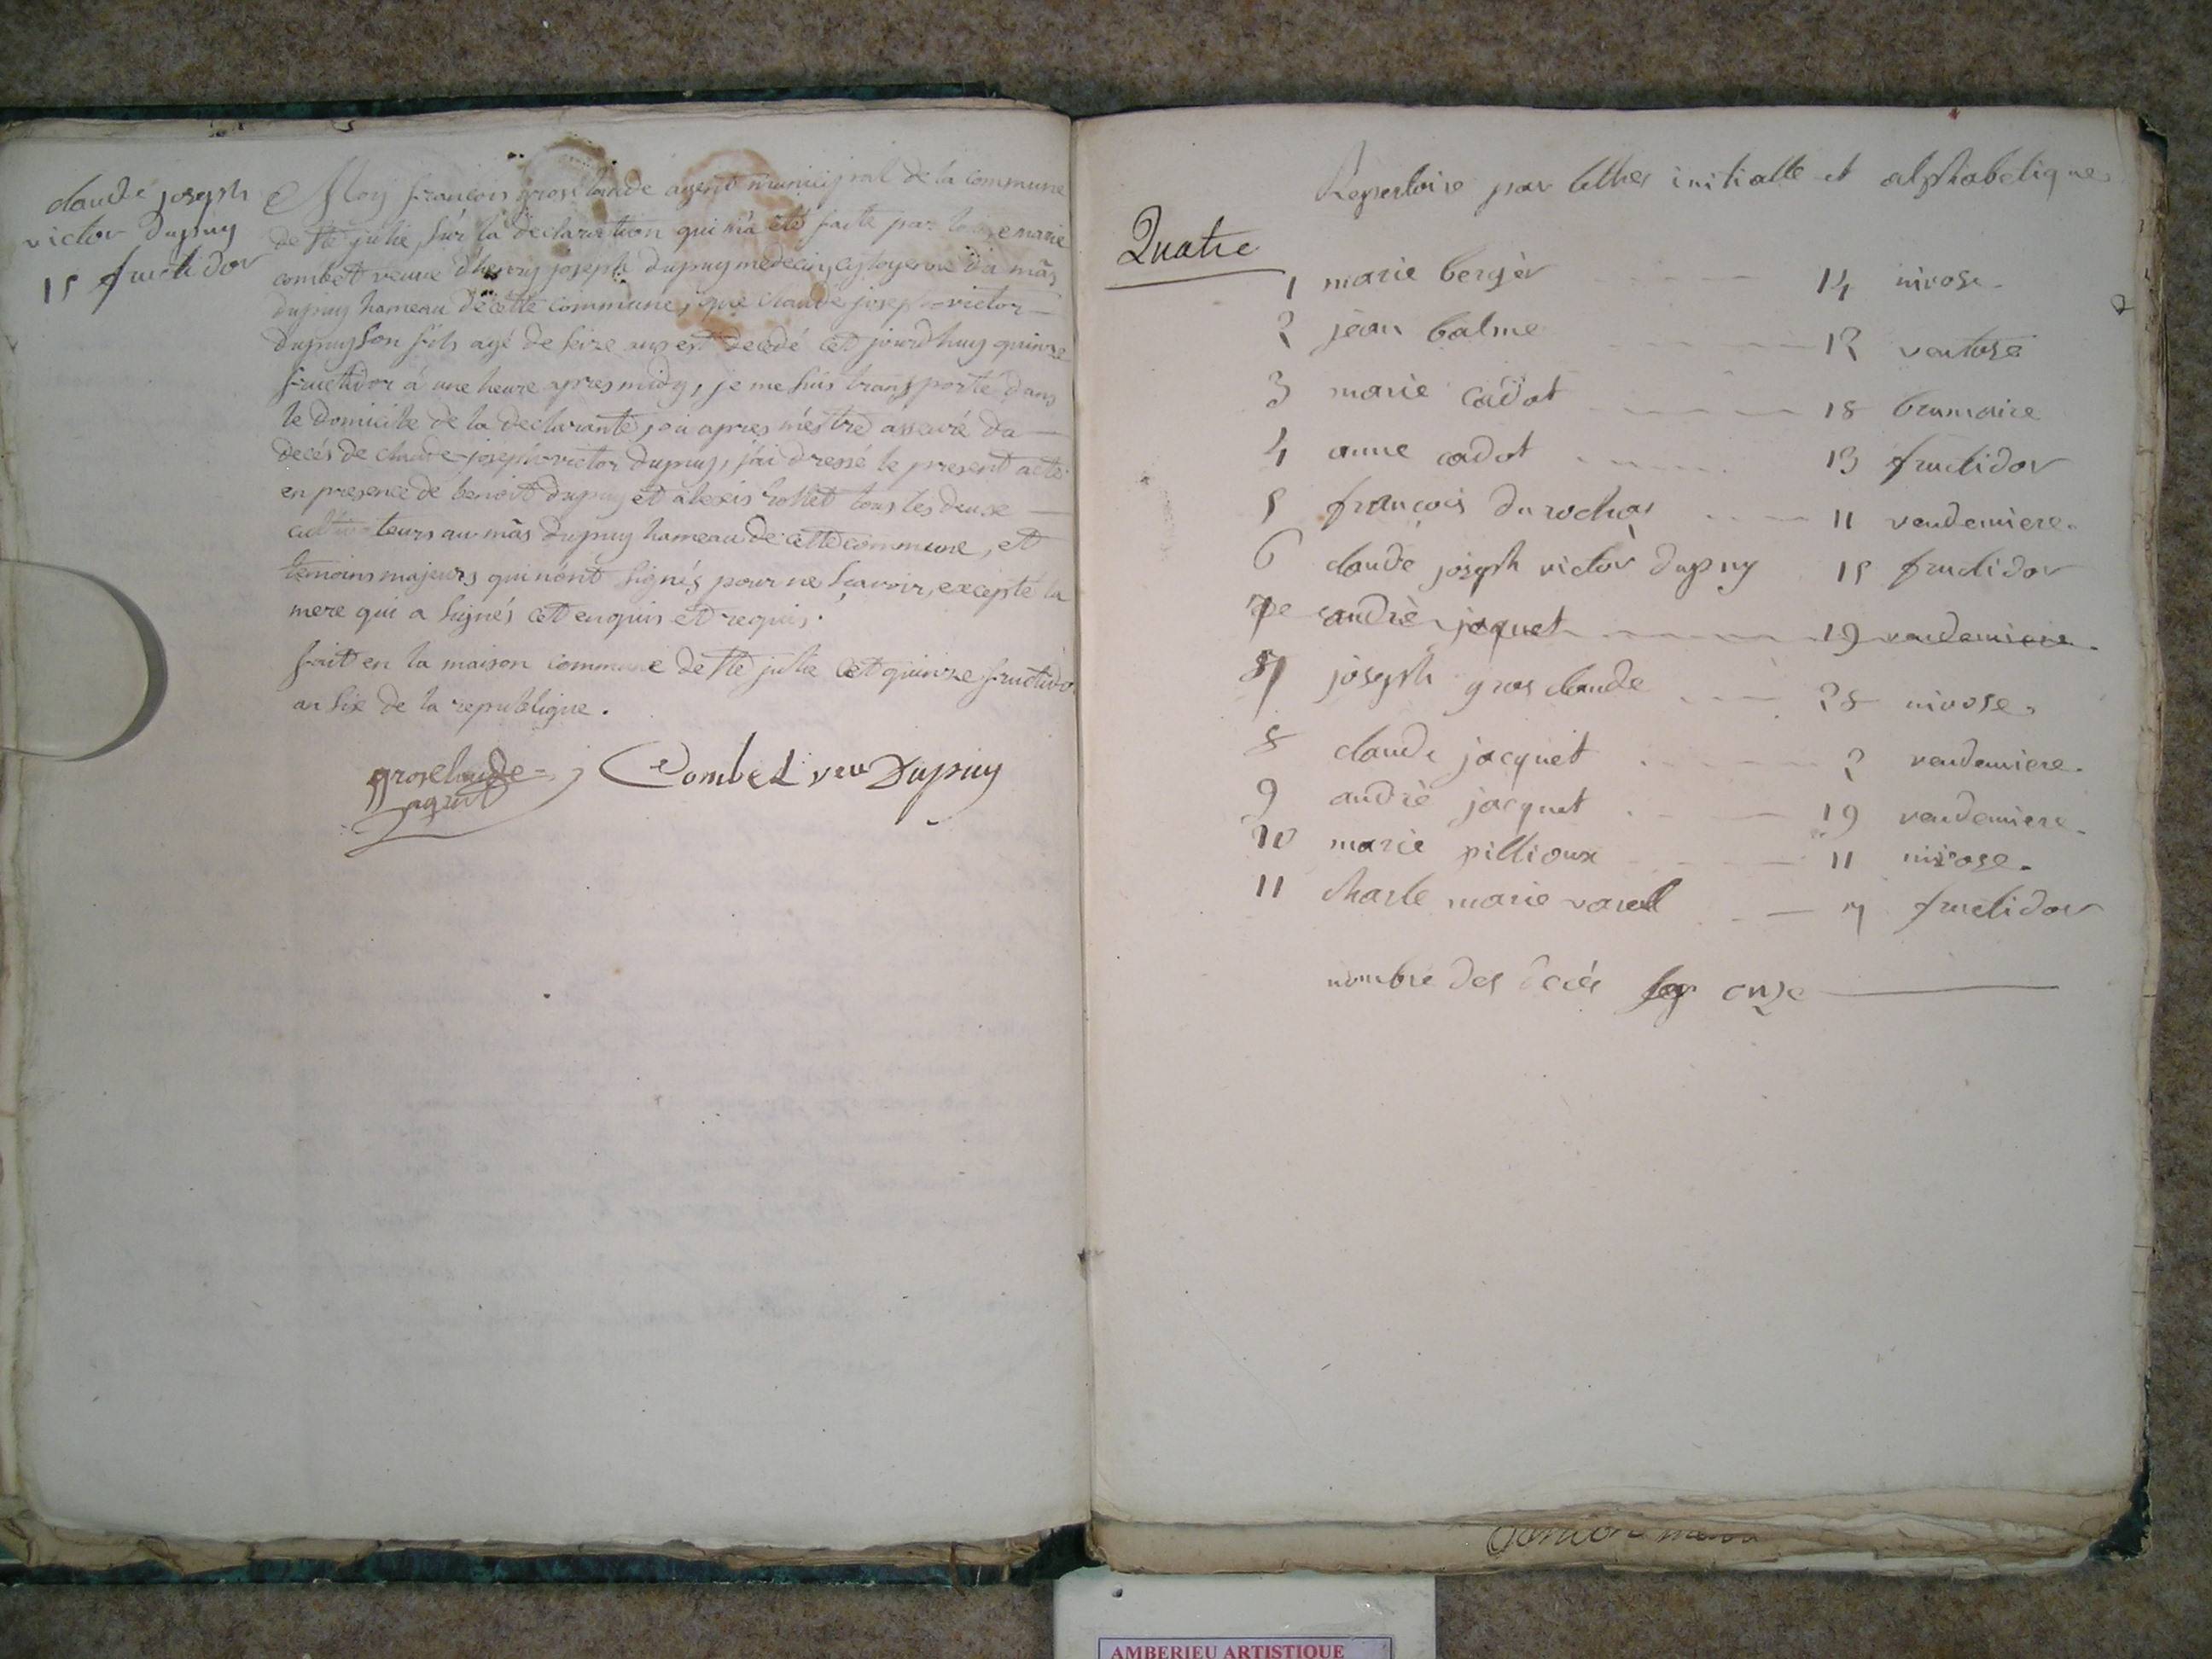 claude joseph
victor dupuy
15 fructidor
Moy francois grosclaude agent municipal de la commune
de ste julie, sur la declaration qui m'a été faite par louise marie
combet veuve d'henry joseph dupuy medecin, citoyenne du mâs
dupuy hameau de cette commune, que claude joseph victor
dupuy son fils agé de seize ans est decedé cet jourd'huy quinze
fructidor á une heure apres midy, je me suis transporté dans
le domicille de la declarante, ou apres m'éstre asseuré du
decés de claude-joseph-victor dupuy, j'ai dressé le present acte
en presence de benoit dupuy et alexis rollet tous les deux
cultivateurs au mâs dupuy hameau de cette commune, et
temoins majeurs qui n'ont signés pour ne sçavoir, excepté la
mere qui a signés cet enquis et requis.
fait en la maison commune de ste julie cet quinze fructido
an six de la republique.
grosclaude
agent
Combet veu Dupuy
Repertoire par lettres initialle et alphabetique
Quatre
1 marie bergèr 14 nivose.
2 jean balme 12 ventose
3 marie cadot 18 brumaire
4 anne cadot 13 fructidor
5 françois du rochas 11 vendemiere.
6 claude joseph victor dupuy 15 fructidor
andrè jaquet 19 vendemiere.
7 joseph gros claude 28 nivose.
8 claude jacquet 2 vendemiere.
9 andrè jacquet 19 vendemiere.
10 marie pillioux 11 nivose.
11 charle marie 7 fructidor
nombre des décés onze
AMBERIEU ARTISTIQUE